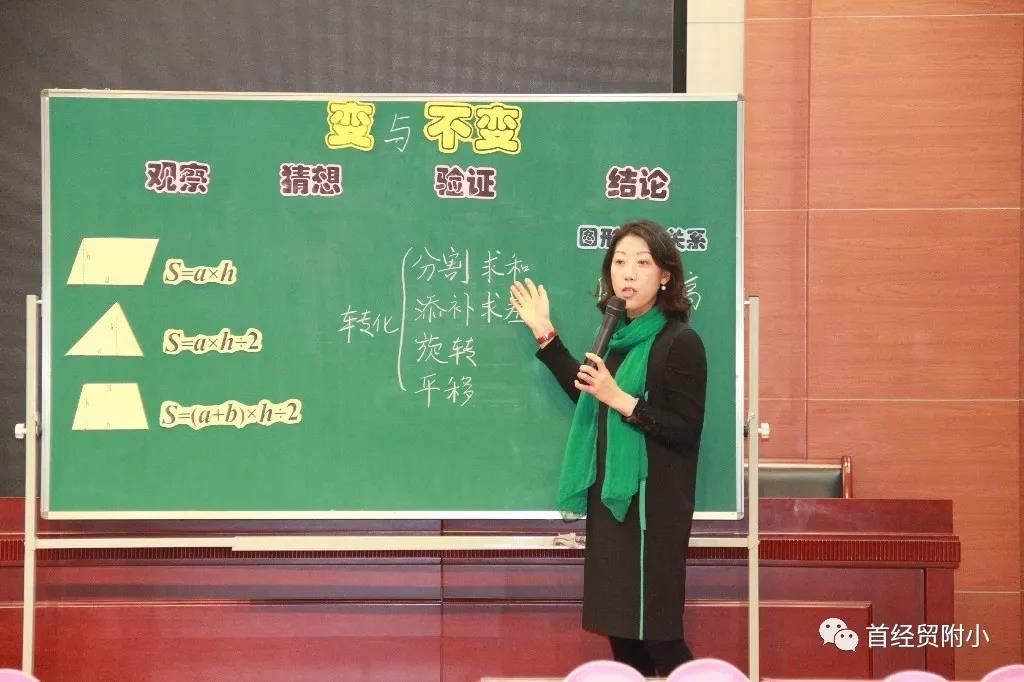 变与不变
观察 猜想 验证 结论
图形 关系
S=a×h
S=a×h÷2
S=(a+b)×h÷2
转化
分割 求和
添补 求差
旋转
平移
高
首经贸附小